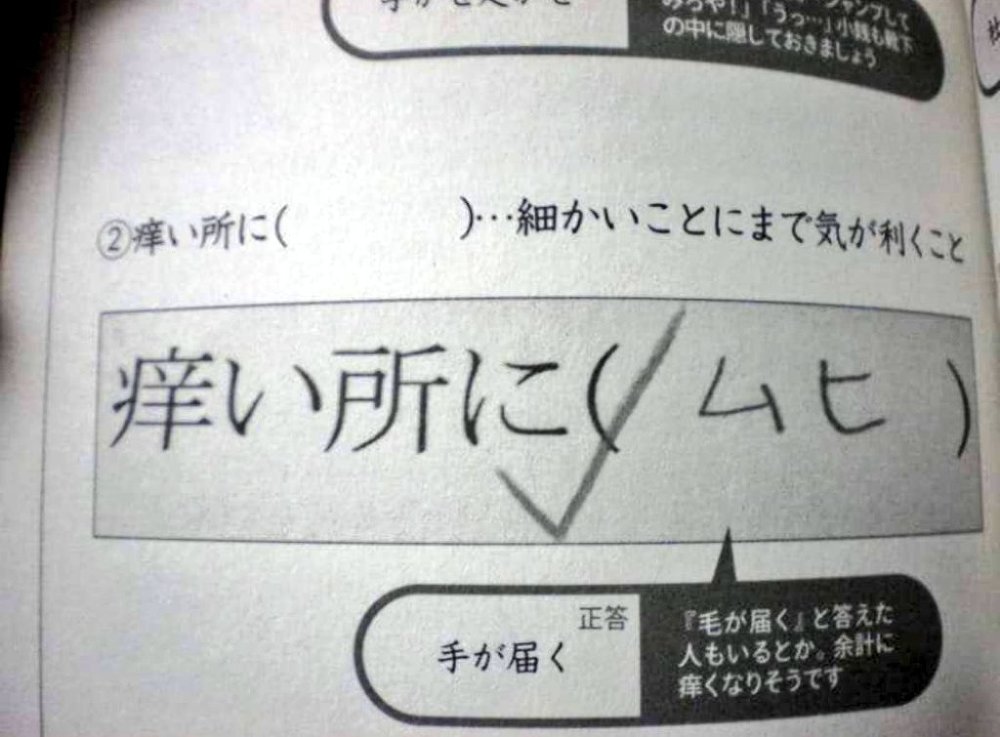 みろや！」「うっ…」小銭も靴下
の中に隠しておきましょう
②痒い所に(　　　　)…細かいことにまで気が利くこと
痒い所に( ムヒ )
正答
手が届く
『毛が届く』と答えた
人もいるとか。余計に
痒くなりそうです